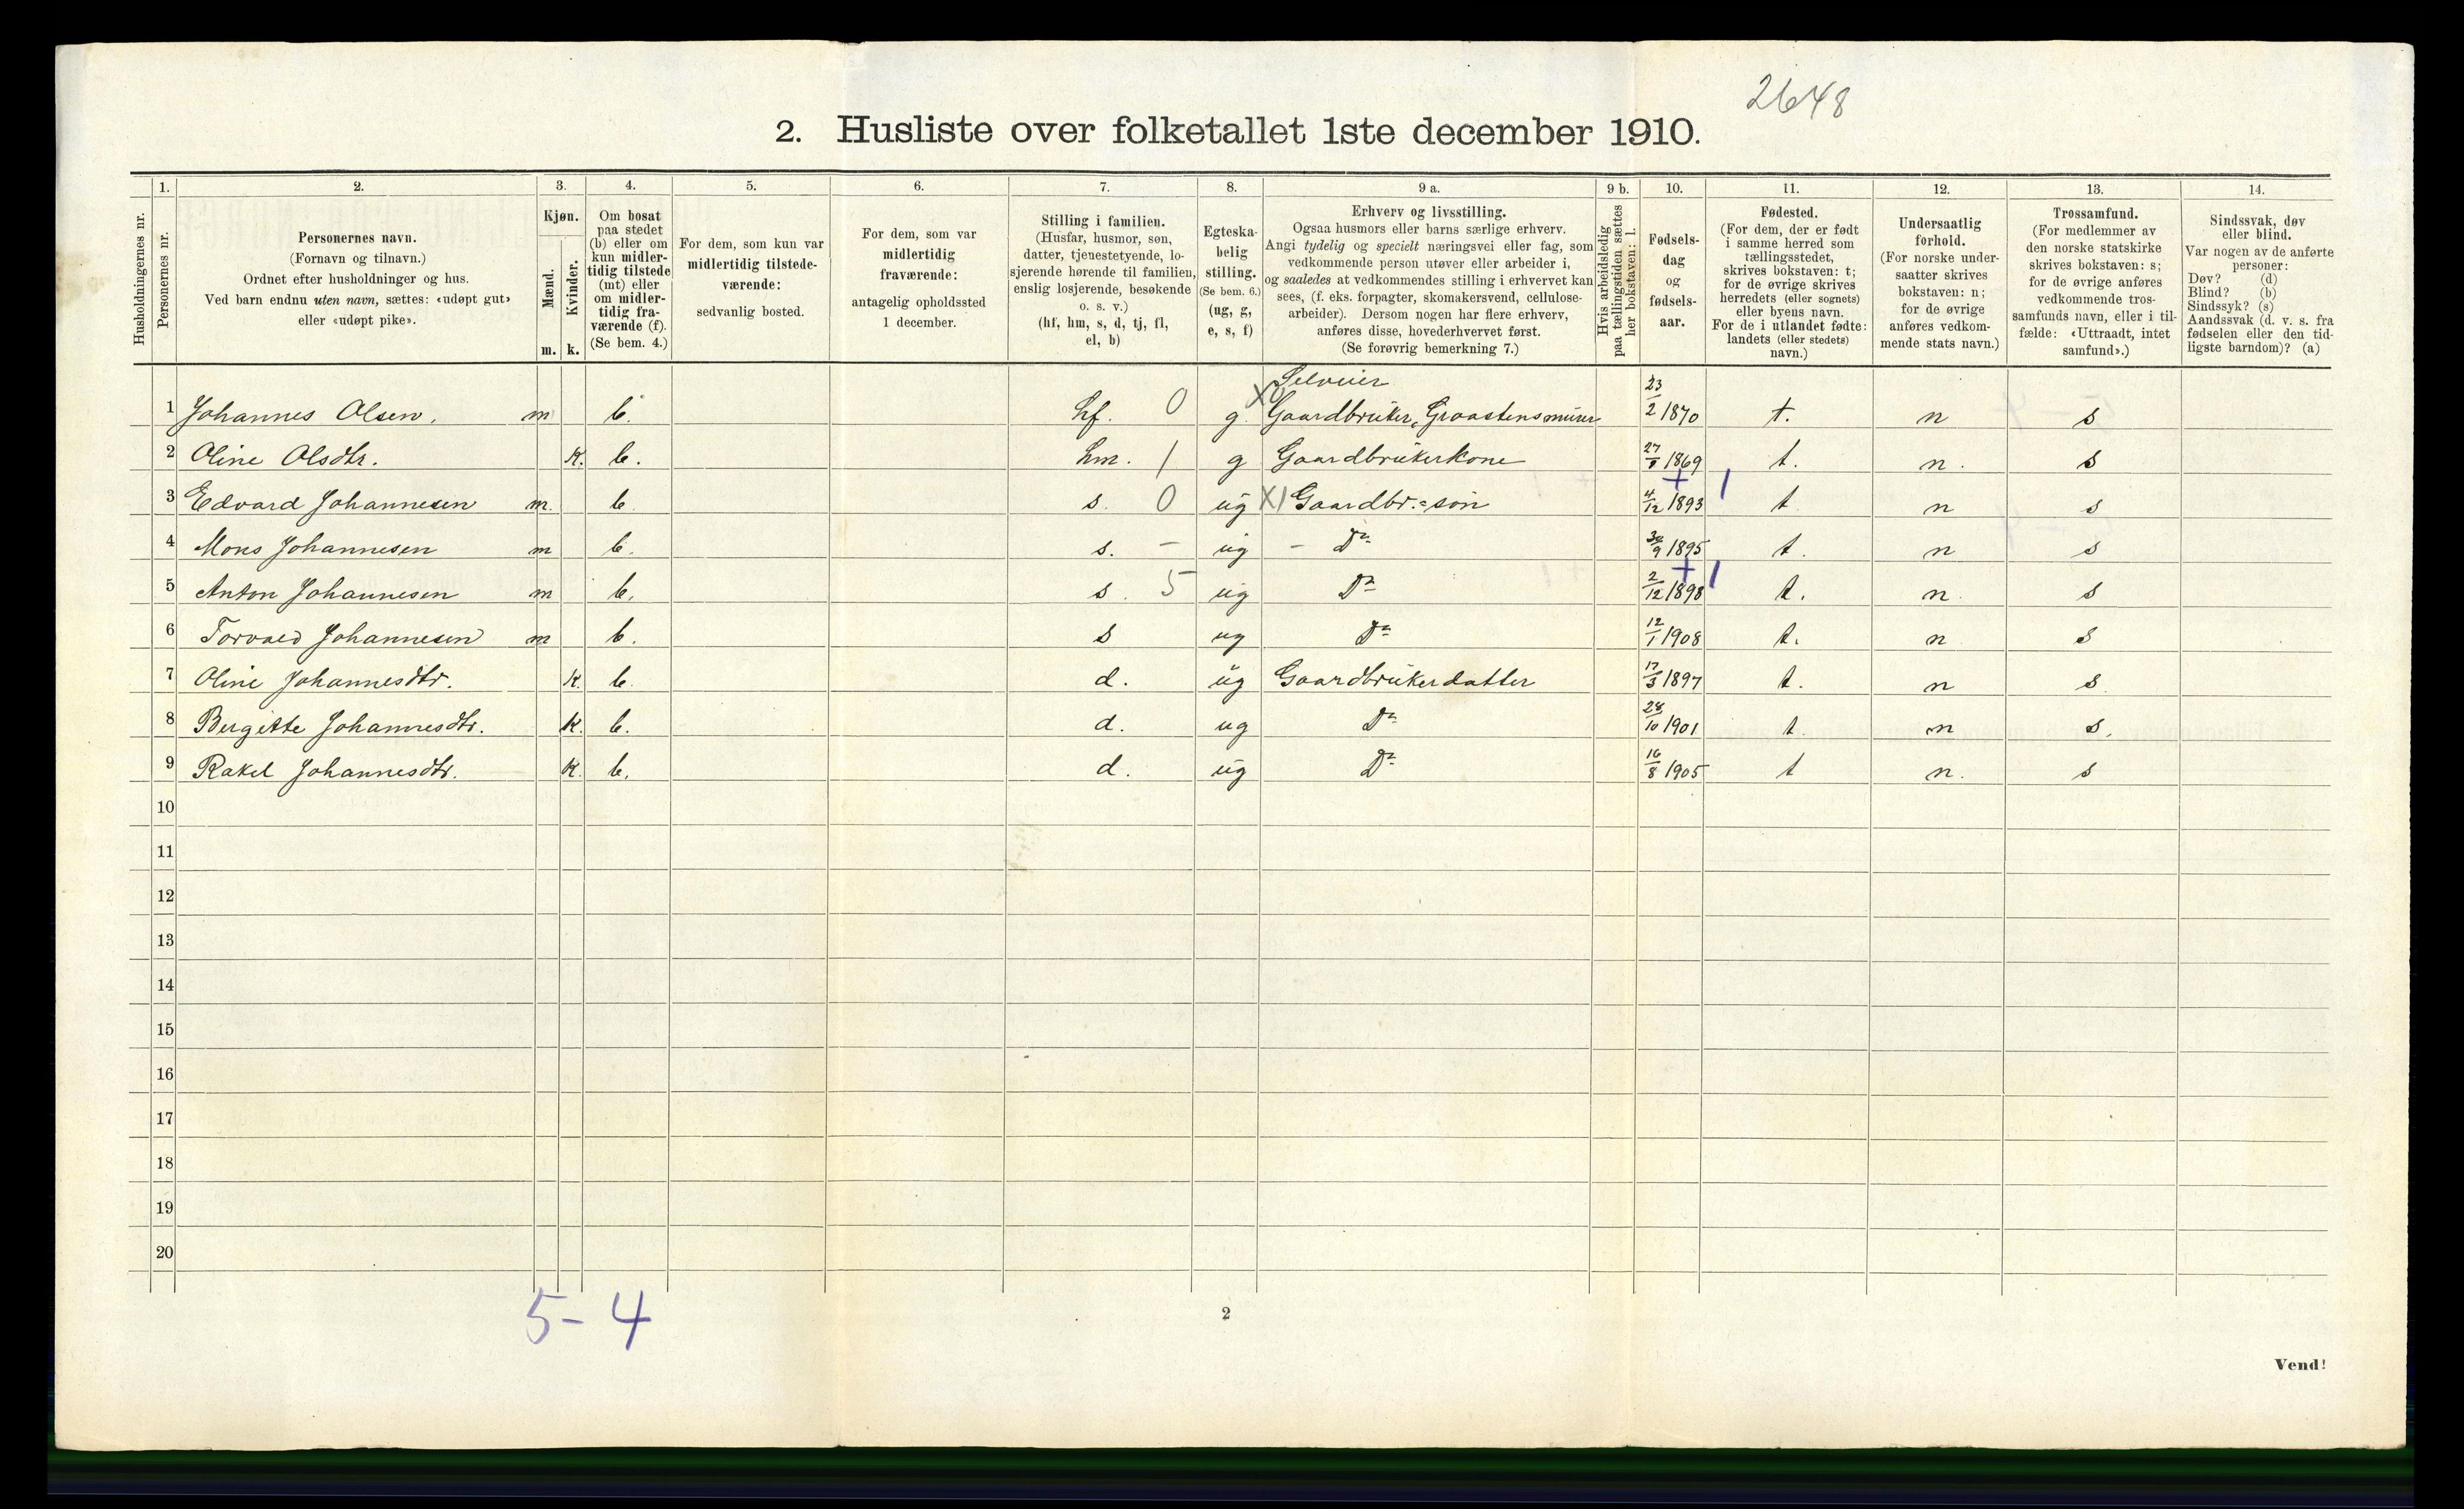 2648
2. Husliste over folketallet 1ste december 1910.
Husholdningernes nr.
1.
Personernes nr.
2.
Personernes navn.
(Fornavn og tilnavn.)
Ordnet efter husholdninger og hus.
Ved barn endnu uten navn, sættes: «udøpt gut»
eller «udøpt pike».
3.
Kjøn.
Mænd.
Kvinder.
m. k.
4.
Om bosat
paa stedet
(b) eller om
kun midler-
tidig tilstede
(mt) eller
om midler-
tidig fra-
værende (f).
(Se bem. 4.)
5.
For dem, som kun var
midlertidig tilstede-
værende:
sedvanlig bosted.
6.
For dem, som var
midlertidig
fraværende:
antagelig opholdssted
1 december.
7.
Stilling i familien.
(Husfar, husmor, søn,
datter, tjenestetyende, lo-
sjerende hørende til familien,
enslig losjerende, besøkende
o. s. v.)
(hf, hm, s, d, tj, fl,
el, b)
8.
Egteska-
belig
stilling.
(Se bem. 6.)
(ug, g,
e, s, f)
9 a.
Erhverv og livsstilling.
Ogsaa husmors eller barns særlige erhverv.
Angi tydelig og specielt næringsvei eller fag, som
vedkommende person utøver eller arbeider i,
og saaledes at vedkommendes stilling i erhvervet kan
sees, (f. eks. forpagter, skomakersvend, cellulose-
arbeider). Dersom nogen har flere erhverv,
anføres disse, hovederhvervet først.
(Se forøvrig bemerkning 7.)
9 b.
Hvis arbeidsledig
paa tællingstiden sættes
her bokstaven: l.
10.
Fødsels-
dag
og
fødsels-
aar.
11.
Fødested.
(For dem, der er født
i samme herred som
tællingsstedet,
skrives bokstaven: t;
for de øvrige skrives
herredets (eller sognets)
eller byens navn.
For de i utlandet fødte:
landets (eller stedets)
navn.)
12.
Undersaatlig
forhold.
(For norske under-
saatter skrives
bokstaven: n;
for de øvrige
anføres vedkom-
mende stats navn.)
13.
Trossamfund.
(For medlemmer av
den norske statskirke
skrives bokstaven: s;
for de øvrige anføres
vedkommende tros-
samfunds navn, eller i til-
fælde: «Uttraadt, intet
samfund».)
14.
Sindssvak, døv
eller blind.
Var nogen av de anførte
personer:
Døv? (d)
Blind? (b)
Sindssyk? (s)
Aandssvak (d. v. s. fra
fødselen eller den tid-
ligste barndom)? (a)
Selveier
1 Johannes Olsen. m b. hf. 0 g. X0 Gaardbruker, Graastensmurer 23/2 1870 t. n s
2 Oline Olsdtr. K. b. hm. 1 g Gaardbrukerkone 27/8 1869 t. n. s
3 Edvard Johannesen m. b s. 0 ug X1 Gaardbr.=søn 4/12 1893 + 1 t n s
4 Mons Johannesen m b. s. - ug - Do 30/9 1895 t. n s
5 Anton Johannesen m b. s. 5 ug Do 2/12 1898 + 1 t. n. s
6 Torvald Johannesen m b. s ug Do 12/1 1908 t. n s
7 Oline Johannesdtr. K. b. d. ug Gaardbrukerdatter 17/3 1897 t. n s.
8 Bergitte Johannesdtr. K. b. d. ug Do 28/10 1901 t. n s.
9 Rakel Johannesdtr. K. b. d. ug Do 16/8 1905 t n. s
10
11
12
13
14
15
16
17
18
19
20
5 - 4
2
Vend!